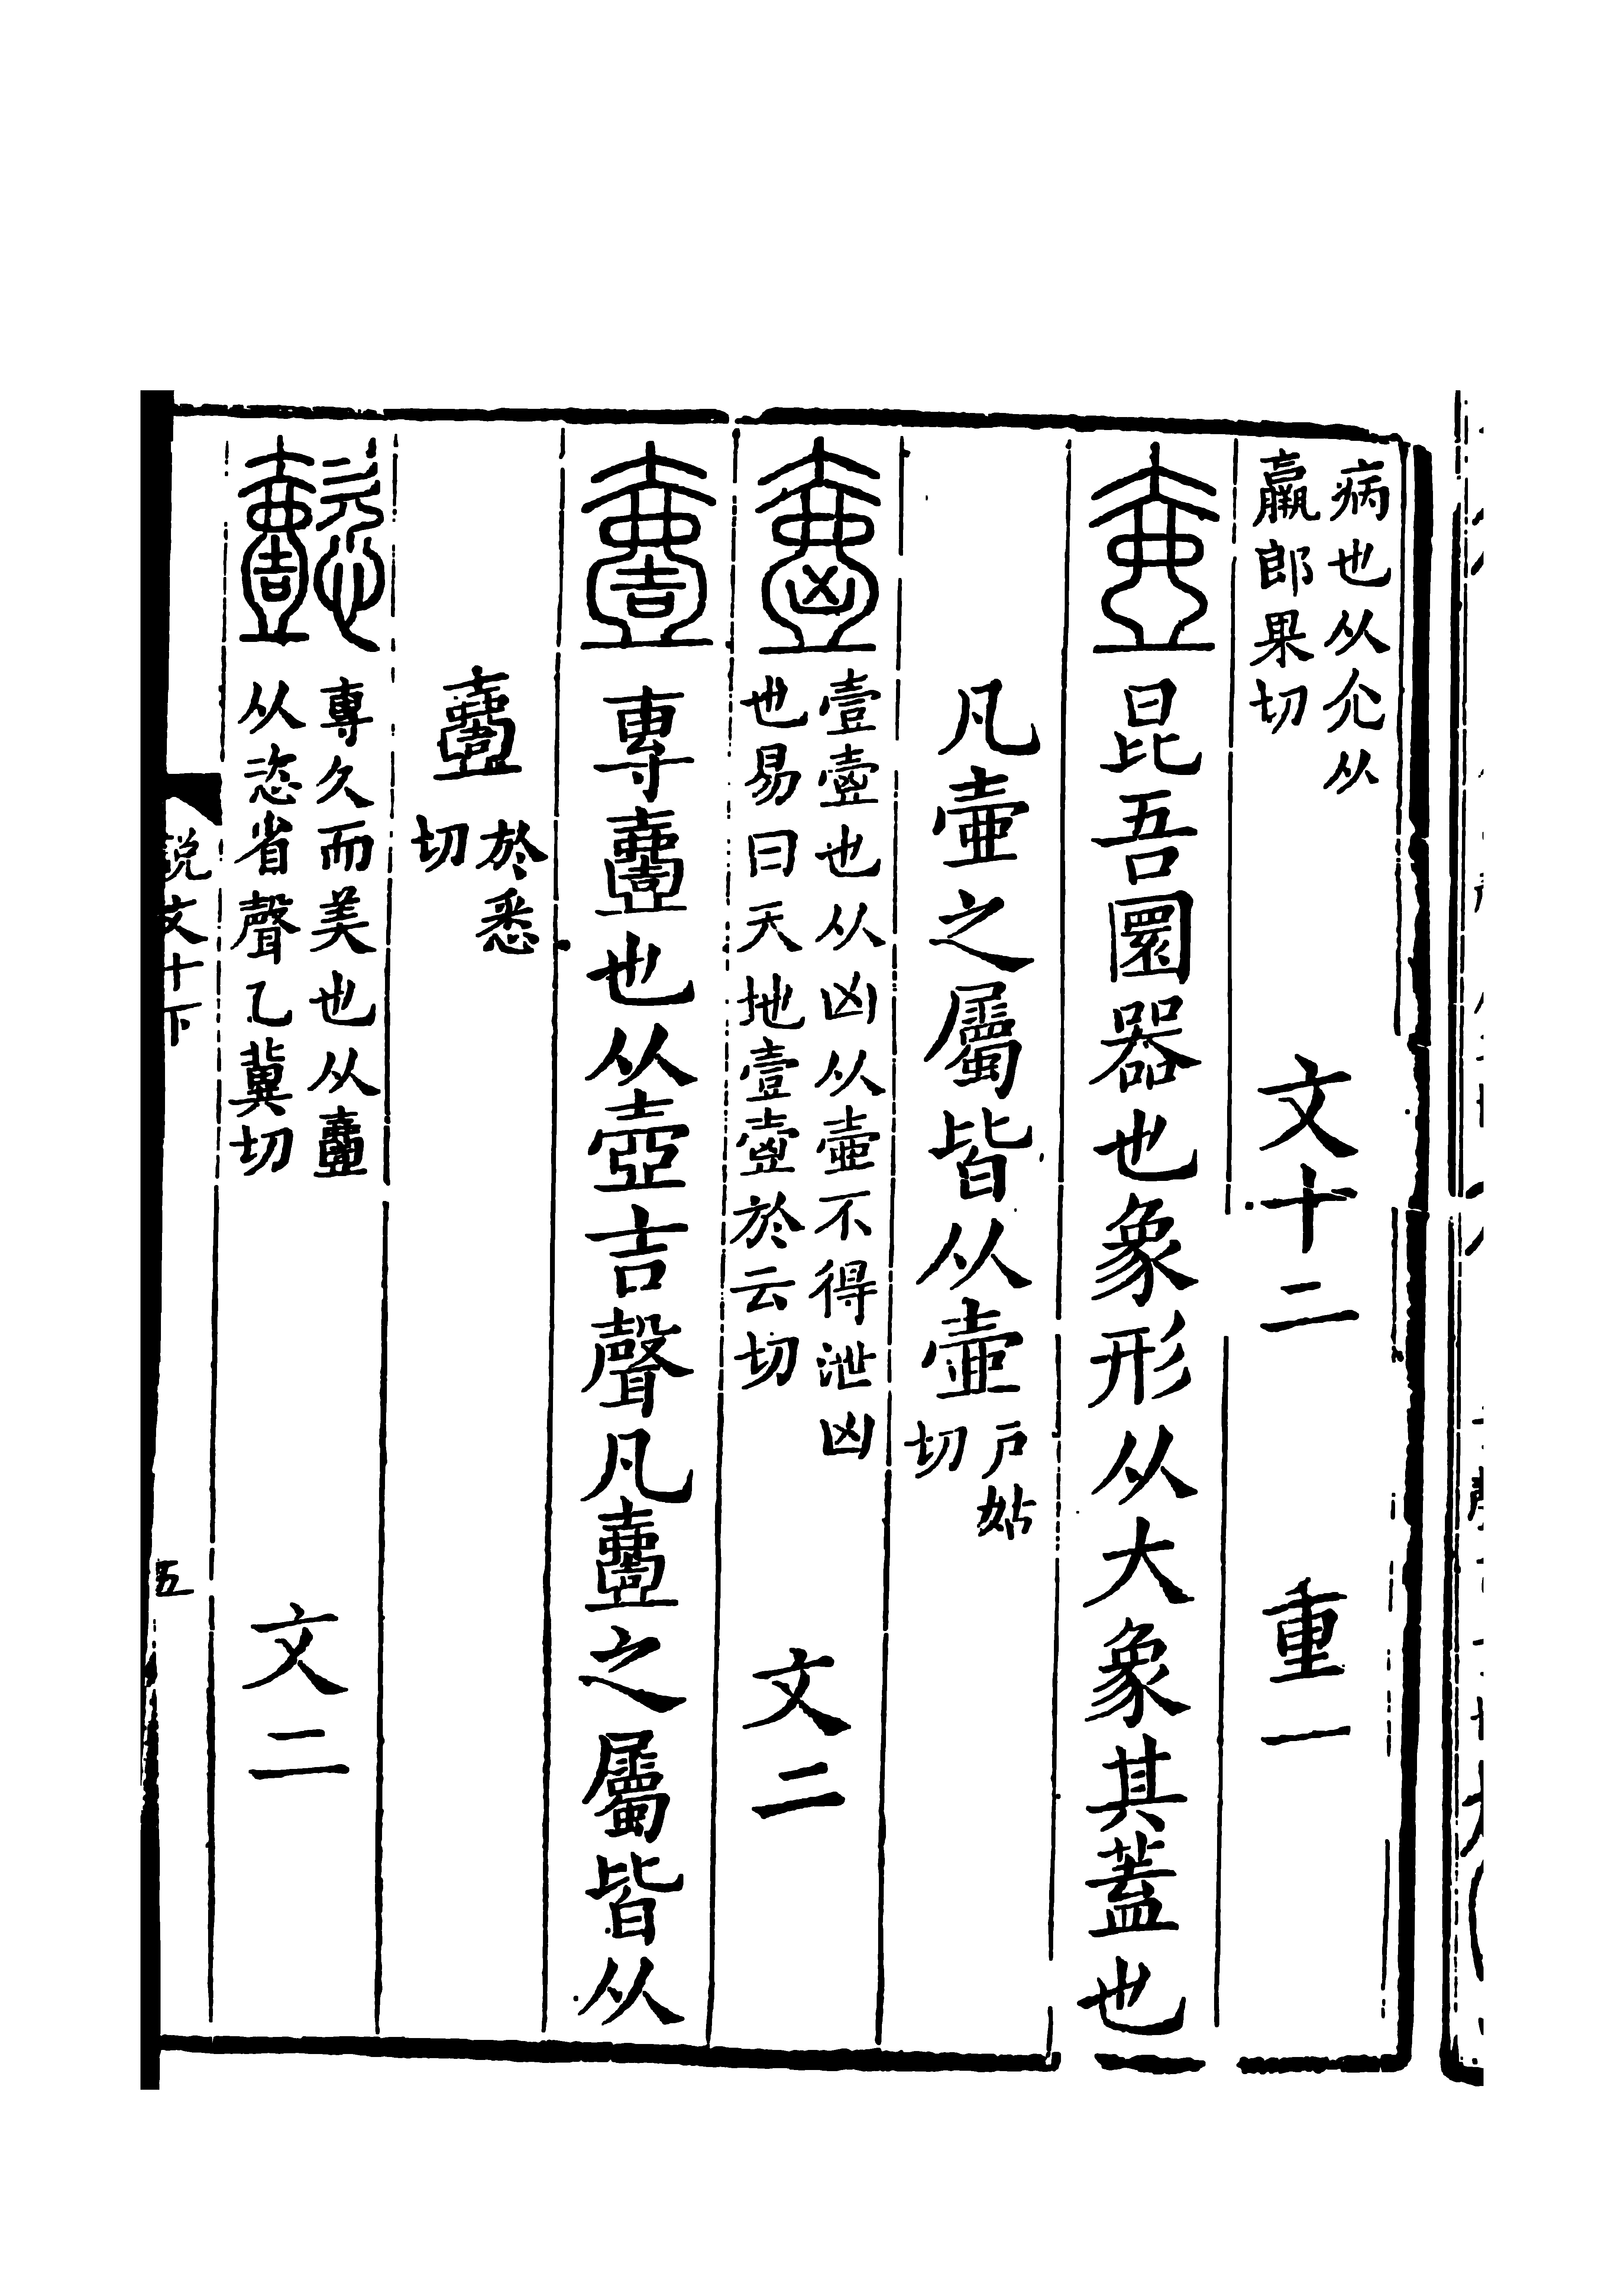 病也从允从
羸郎果切
文十二 重一
壺 昆吾圜器也象形从大象其蓋也
凡壺之屬皆从壺 戶姑
切
壺 壹壺也从凶从壺不得泄凶
也易曰天地壹壺於云切
文二
壹 專壹也从壺吉聲凡壹之屬皆从
壹 於悉
切
懿 專久而美也从壹
从恣省聲乙冀切
文二
說文十下
五